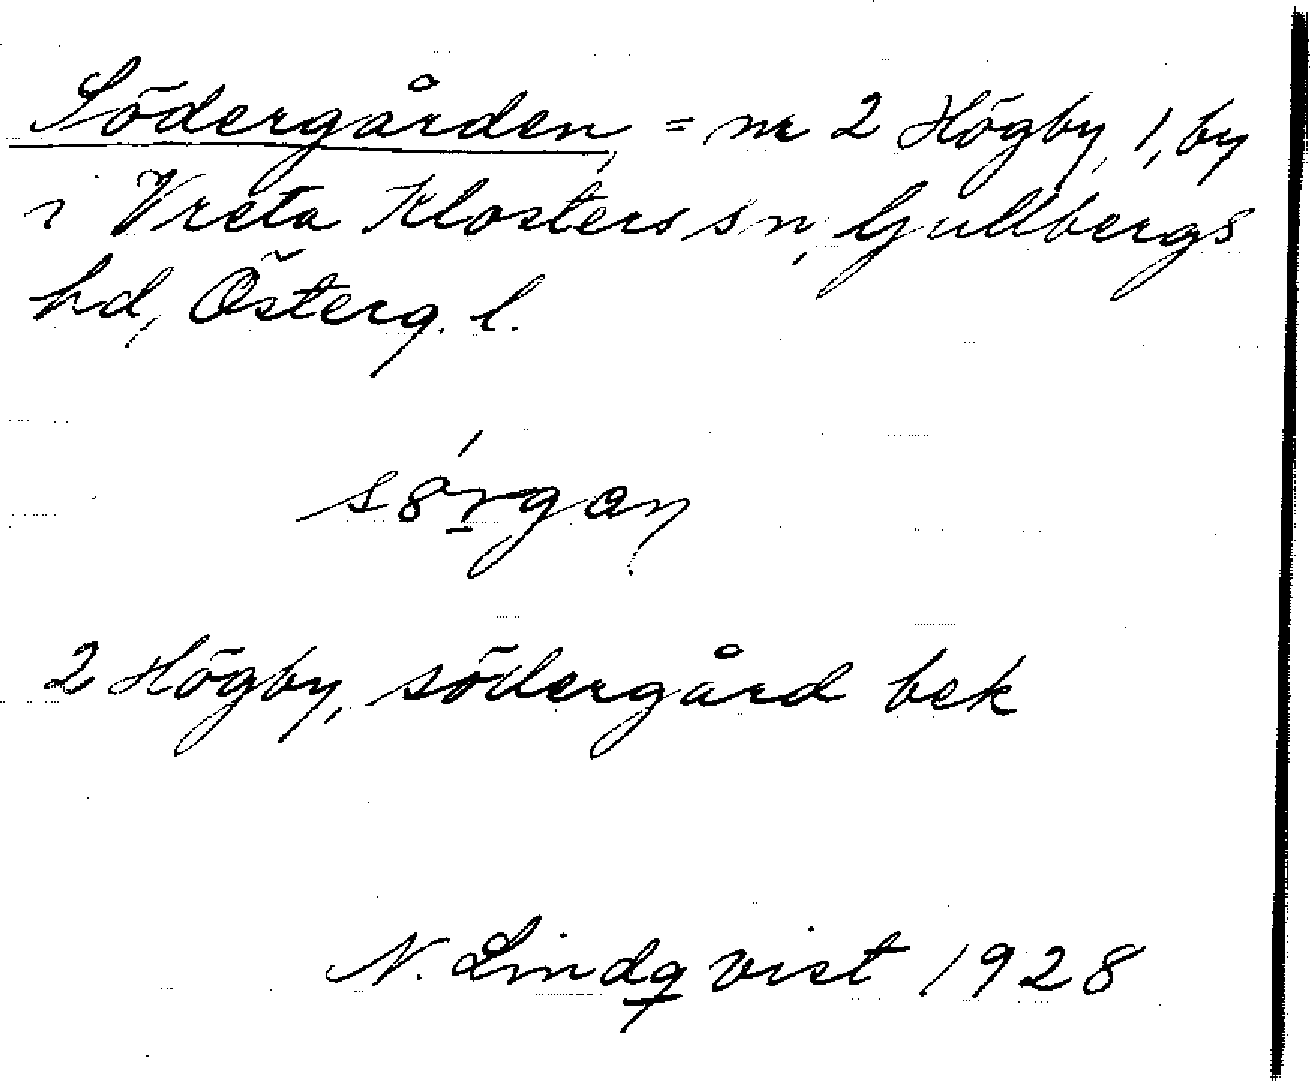 Södergården = nr 2 Högby, 1, by
i Vreta Klosters sn, Gullbergs
hd, Österg. l.
2 Högby, södergård bek
N. Lindqvist 1928